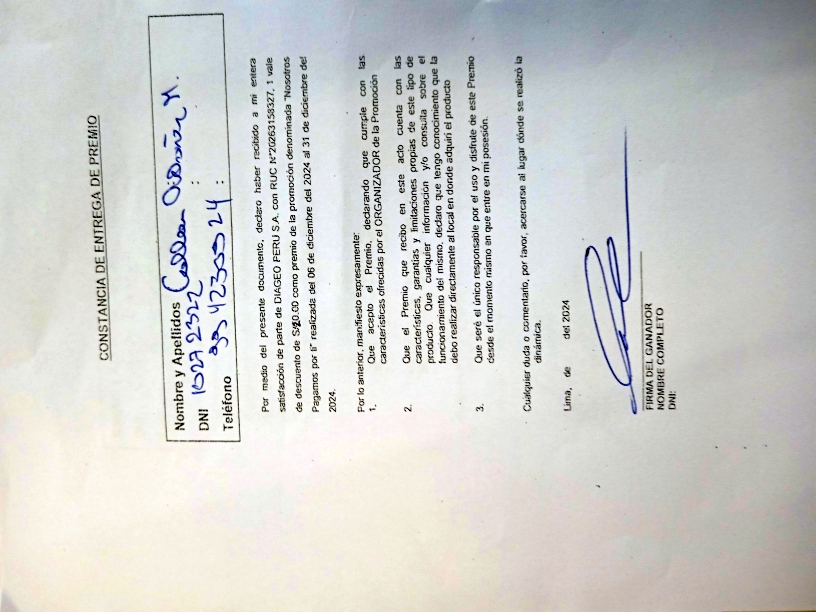 CONSTANCIA DE ENTREGA DE PREMIO
Nombre y Apellidos
DNI 10272322 :
Teléfono :
Por medio del presente documento, declaro haber recibido a mi entera
satisfacción de parte de DIAGEO PERU S.A. con RUC N°20263158327, 1 vale
de descuento de S/20.00 como premio de la promoción denominada "Nosotros
Pagamos por ti" realizada del 06 de diciembre del 2024 al 31 de diciembre del
2024.
Por lo anterior, manifiesto expresamente:
1. Que acepto el Premio, declarando que cumple con las
características ofrecidas por el ORGANIZADOR de la Promoción
2. Que el Premio que recibo en este acto cuenta con las
características, garantías y limitaciones propias de este tipo de
producto. Que cualquier información y/o consulta sobre el
funcionamiento del mismo, declaro que tengo conocimiento que la
debo realizar directamente al local en donde adquirí el producto
3. Que seré el único responsable por el uso y disfrute de este Premio
desde el momento mismo en que entre en mi posesión.
Cualquier duda o comentario, por favor, acercarse al lugar dónde se realizó la
dinámica.
Lima, de del 2024
FIRMA DEL GANADOR
NOMBRE COMPLETO
DNI: